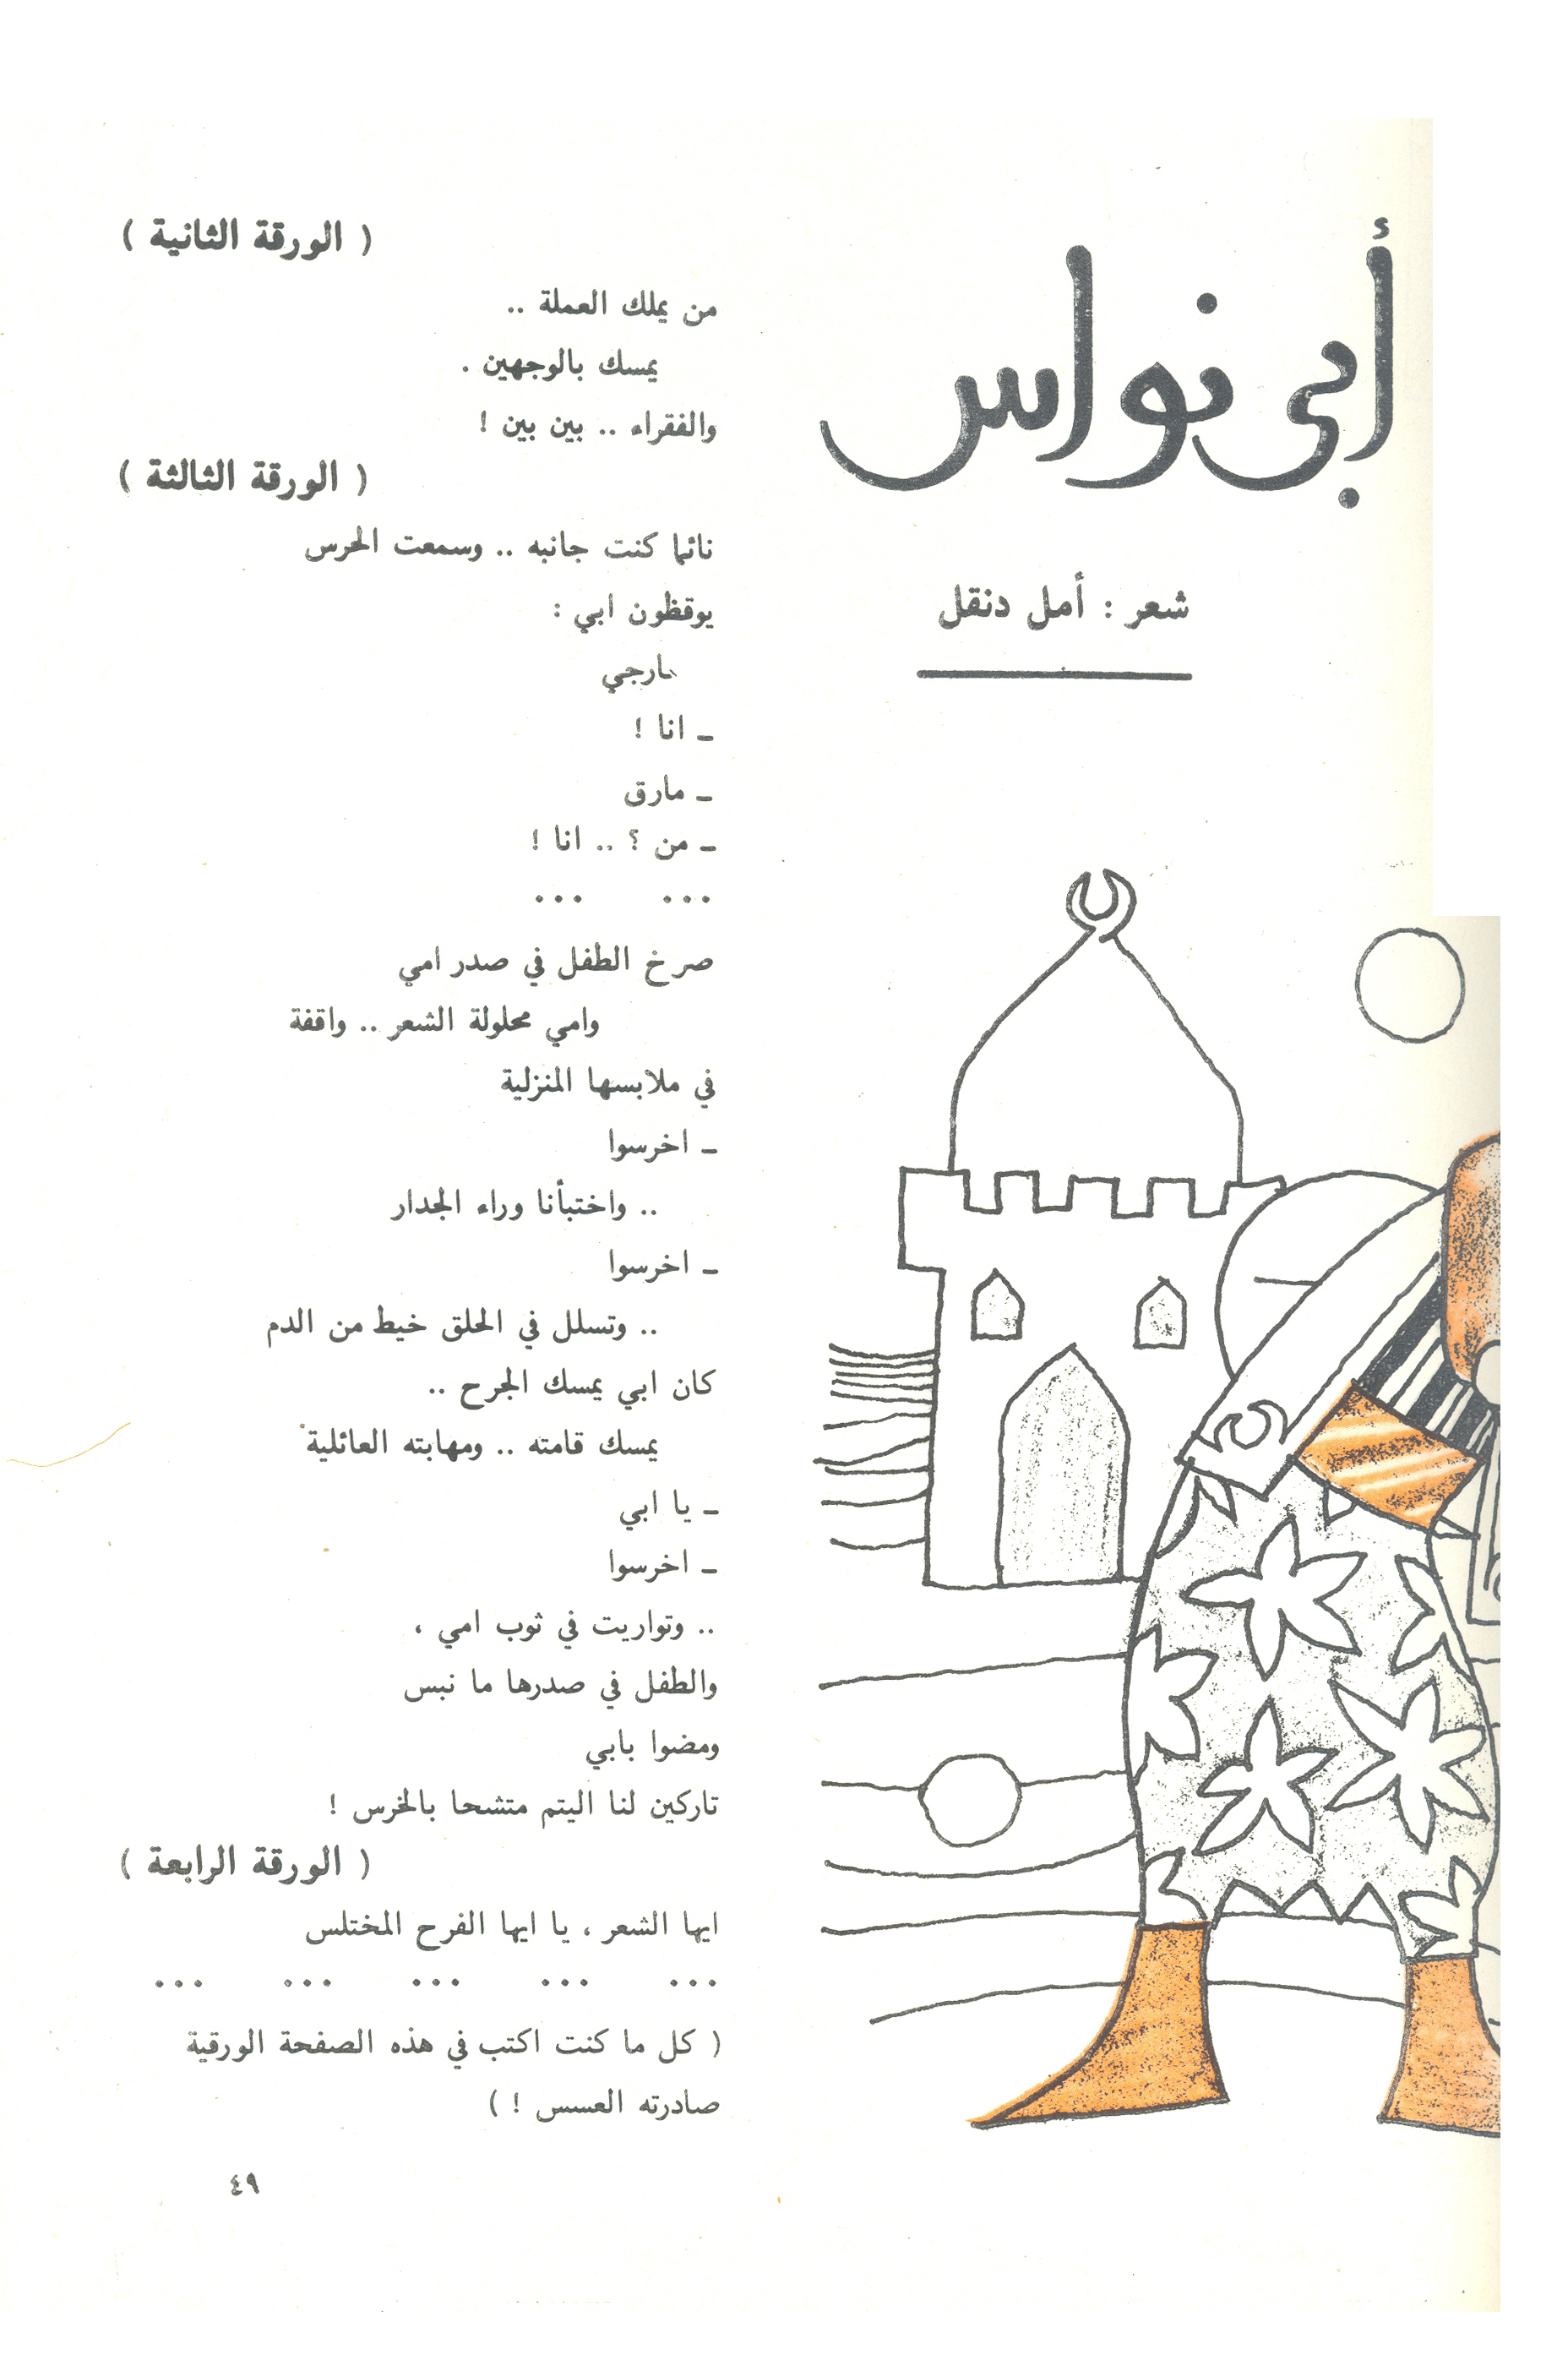 أبي نواس
شعر : أمل دنقل
( الورقة الثانية )
من يملك العملة ..
يمسك بالوجهين .
والفقراء .. بين بين !
( الورقة الثالثة )
نائما كنت جانبه .. وسمعت الحرس
يوقظون ابي :
ـ انا !
ـ مارق
ـ من ؟ .. انا !
... ...
صرخ الطفل في صدر امي
وامي محلولة الشعر .. واقفة
في ملابسها المنزلية
ـ اخرسوا
.. واختبأنا وراء الجدار
ـ اخرسوا
.. وتسلل في الحلق خيط من الدم
كان ابي يمسك الجرح ..
يمسك قامته .. ومهابته العائلية
ـ يا ابي
ـ اخرسوا
.. وتواريت في ثوب امي ،
والطفل في صدرها ما نبس
ومضوا بابي
تاركين لنا اليتم متشحا بالخرس !
( الورقة الرابعة )
ايها الشعر ، يا ايها الفرح المختلس
... ... ... ... ...
( كل ما كنت اكتب في هذه الصفحة الورقية
صادرته العسس ! )
٤٩